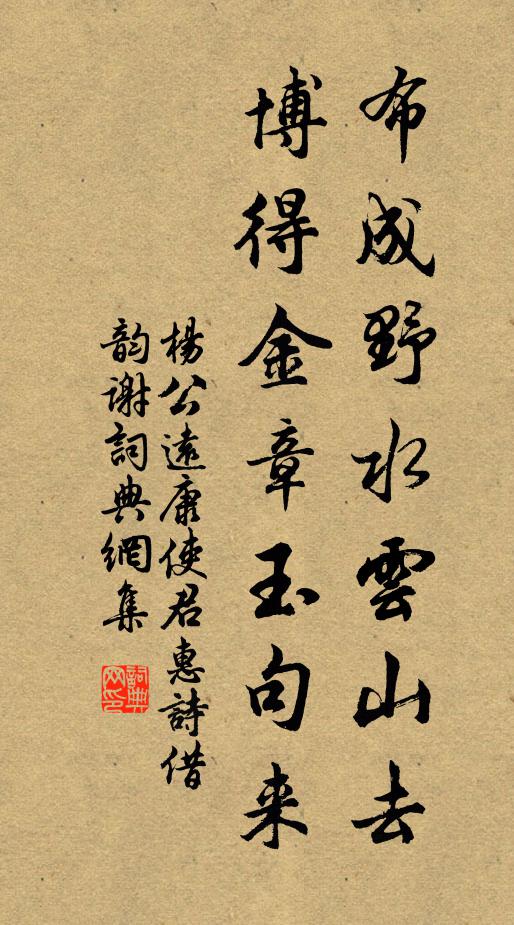 布成野水雲山去
博得金章玉句来
楊公遠庸使君惠詩借
韵謝詞典網集
詞典網印